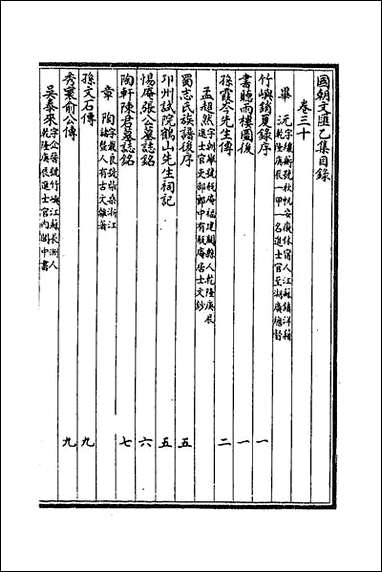 國朝文匯乙集目錄
卷三十
畢沅字纕蘅號秋帆安徽休寧人江蘇鎮洋籍
乾隆庚辰一甲一名進士官至湖廣總督
竹嶼銷夏錄序 一
書聽雨樓圖後 一
孫霞岑先生傳 二
孟超然字朝舉號瓶庵福建閩縣人乾隆庚辰
進士官吏部郎中有瓶庵居士文鈔
蜀志氏族譜後序 五
卭州試院鶴山先生祠記 五
惕庵張公墓誌銘 六
陶軒陳君墓誌銘 七
章陶字良號泰浙江
諸暨人有古文鈔
孫文石傳 九
秀粟俞公傳 九
吳泰來字企晉號竹嶼江蘇長洲人
乾隆庚辰進士官內閣中書